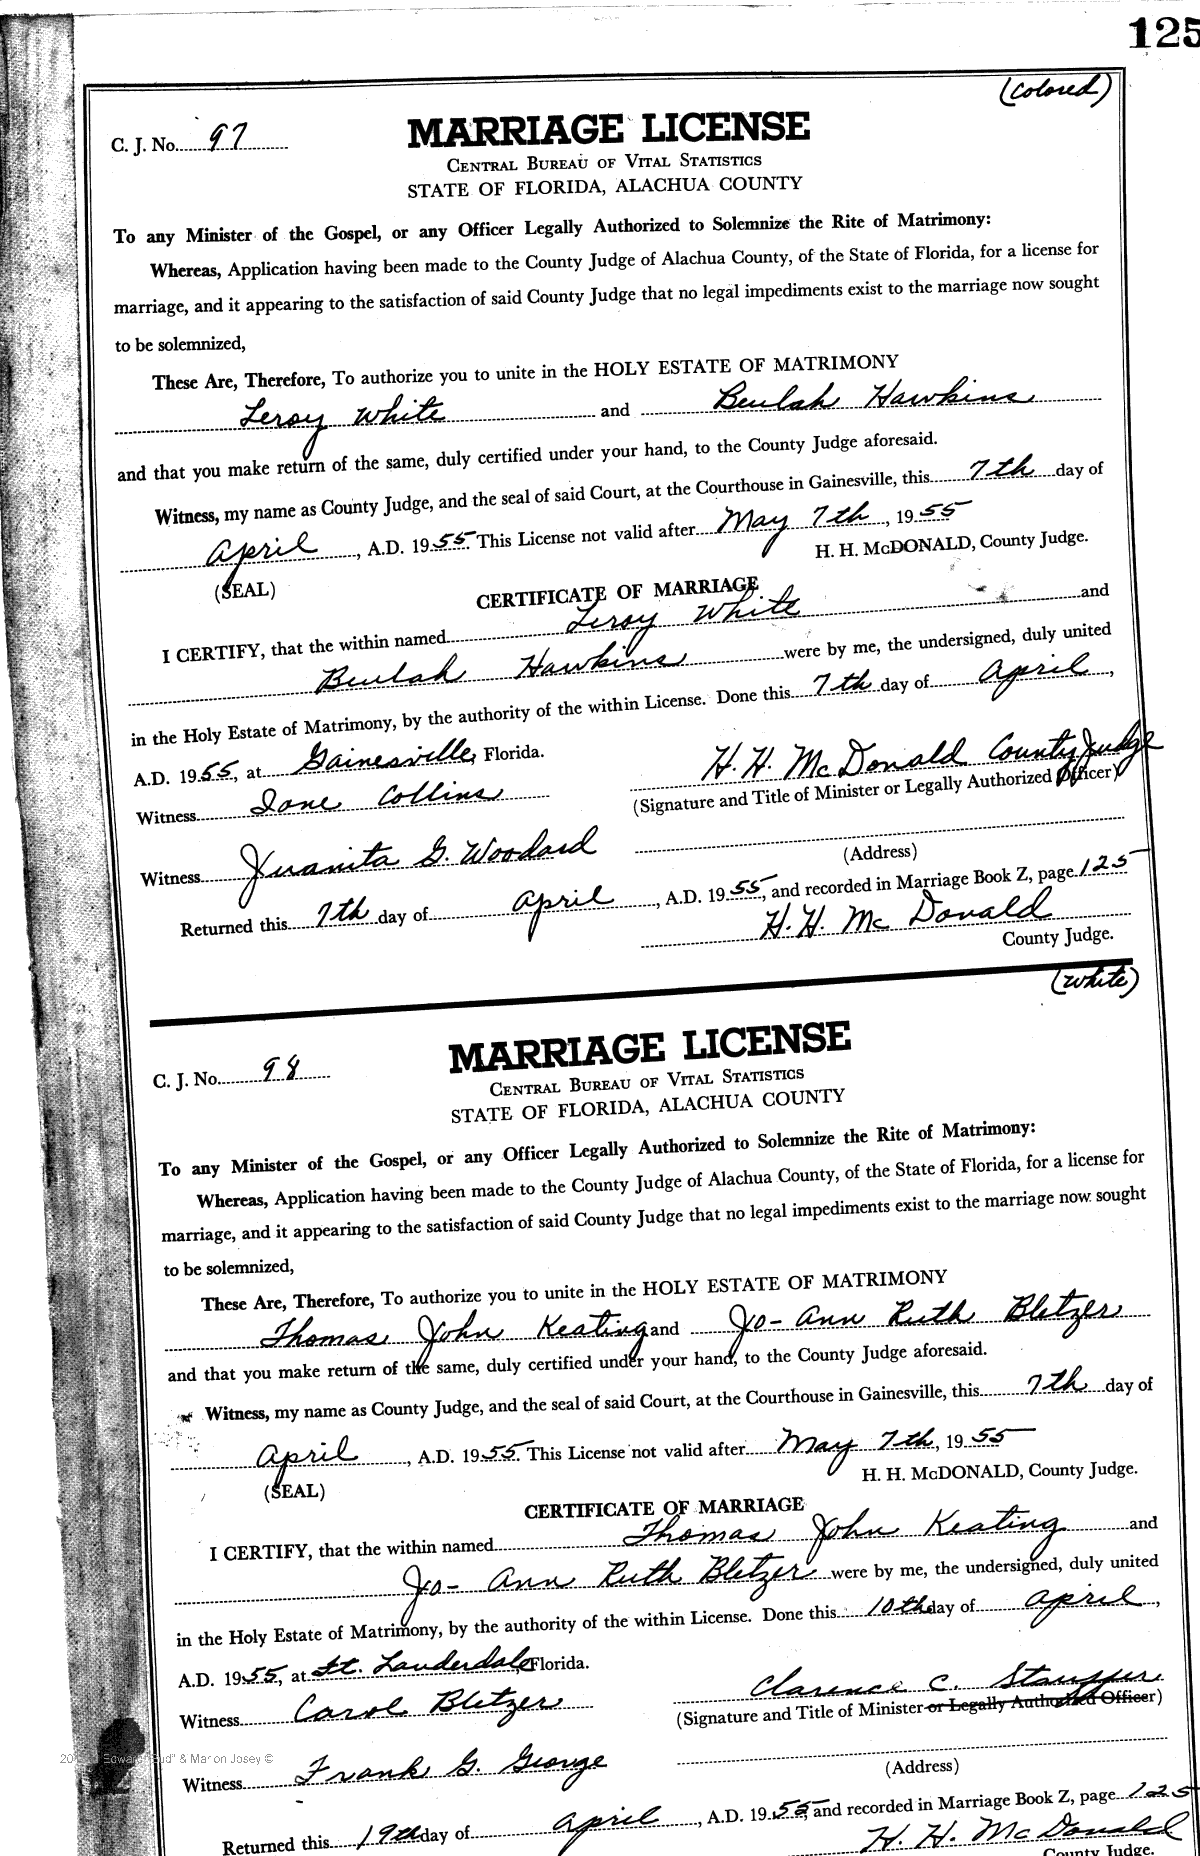 125
(Colored)
C. J. No. 97
MARRIAGE LICENSE
CENTRAL BUREAU OF VITAL STATISTICS
STATE OF FLORIDA, ALACHUA COUNTY
To any Minister of the Gospel, or any Officer Legally Authorized to Solemnize the Rite of Matrimony:
Whereas, Application having been made to the County Judge of Alachua County, of the State of Florida, for a license for
marriage, and it appearing to the satisfaction of said County Judge that no legal impediments exist to the marriage now sought
to be solemnized,
These Are, Therefore, To authorize you to unite in the HOLY ESTATE OF MATRIMONY
Leroy White and Beulah Hawkins
and that you make return of the same, duly certified under your hand, to the County Judge aforesaid.
Witness, my name as County Judge, and the seal of said Court, at the Courthouse in Gainesville, this 7th day of
April, A.D. 1955. This License not valid after May 7th, 1955
H. H. McDONALD, County Judge.
(SEAL)
CERTIFICATE OF MARRIAGE
I CERTIFY, that the within named Leroy White and
Beulah Hawkins were by me, the undersigned, duly united
in the Holy Estate of Matrimony, by the authority of the within License. Done this 7th day of April,
A.D. 1955, at Gainesville, Florida.
H. H. McDonald County Judge
(Signature and Title of Minister or Legally Authorized Officer)
Witness Ione Collins
(Address)
Witness Juanita G. Woodard
Returned this 7th day of April, A.D. 1955, and recorded in Marriage Book Z, page 125
H. H. McDonald
County Judge.
(White)
C. J. No. 98
MARRIAGE LICENSE
CENTRAL BUREAU OF VITAL STATISTICS
STATE OF FLORIDA, ALACHUA COUNTY
To any Minister of the Gospel, or any Officer Legally Authorized to Solemnize the Rite of Matrimony:
Whereas, Application having been made to the County Judge of Alachua County, of the State of Florida, for a license for
marriage, and it appearing to the satisfaction of said County Judge that no legal impediments exist to the marriage now sought
to be solemnized,
These Are, Therefore, To authorize you to unite in the HOLY ESTATE OF MATRIMONY
Thomas John Keating and Jo-Ann Ruth Bletzer
and that you make return of the same, duly certified under your hand, to the County Judge aforesaid.
Witness, my name as County Judge, and the seal of said Court, at the Courthouse in Gainesville, this 7th day of
April, A.D. 1955. This License not valid after May 7th, 1955
H. H. McDONALD, County Judge.
(SEAL)
CERTIFICATE OF MARRIAGE
I CERTIFY, that the within named Thomas John Keating and
Jo-Ann Ruth Bletzer were by me, the undersigned, duly united
in the Holy Estate of Matrimony, by the authority of the within License. Done this 10th day of April,
A.D. 1955, at Ft. Lauderdale, Florida.
Clarence C. Stauffer
(Signature and Title of Minister or Legally Authorized Officer)
Witness Carol Bletzer
(Address)
Witness Frank G. George
Returned this 19th day of April, A.D. 1955, and recorded in Marriage Book Z, page 125
H. H. McDonald
County Judge.
& Marion Josey ©